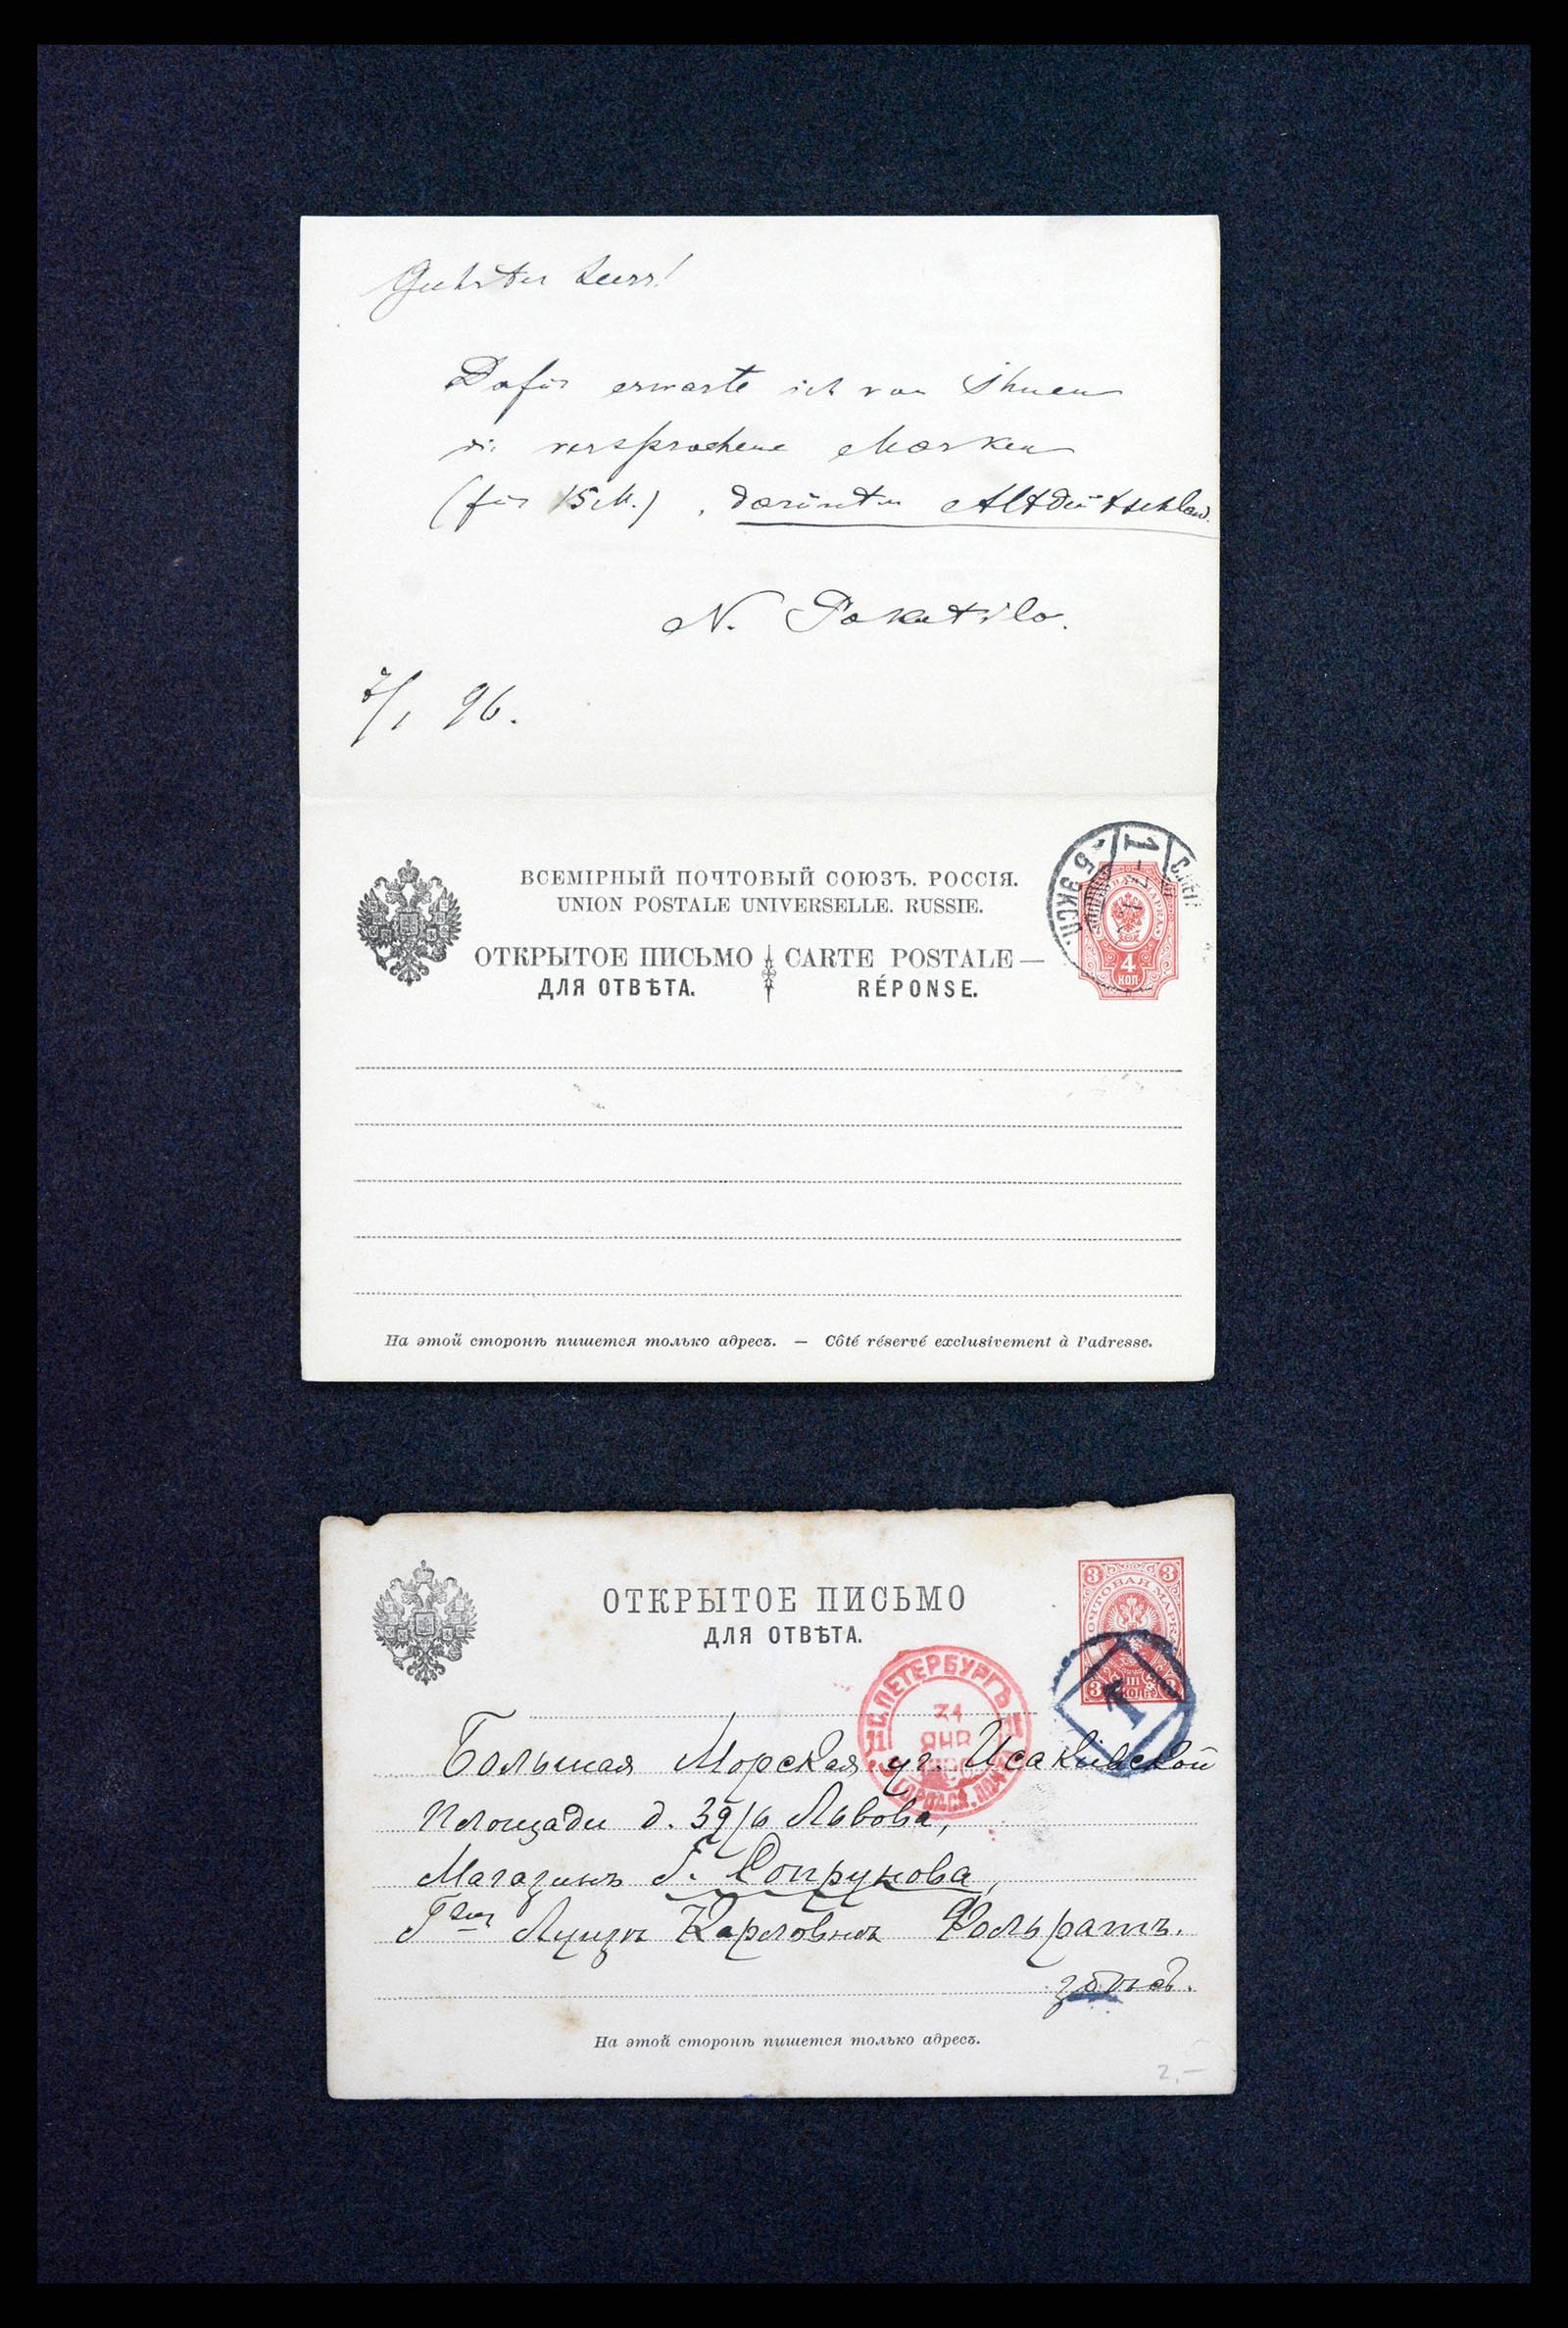 Geehrter Herr!
Dafür erwarte ich von Ihnen
die versprochene Marken
(für 15 M.), darunter Altdeutschland.
N. Pokatilo.
7/I 96.
ВСЕМІРНЫЙ ПОЧТОВЫЙ СОЮЗЪ. РОССІЯ.
UNION POSTALE UNIVERSELLE. RUSSIE.
ОТКРЫТОЕ ПИСЬМО CARTE POSTALE —
ДЛЯ ОТВѢТА. RÉPONSE.
5 ЭКСП. 1
МАРКА
4
КОП
На этой сторонѣ пишется только адресъ. — Côté réservé exclusivement à l'adresse.
ОТКРЫТОЕ ПИСЬМО
ДЛЯ ОТВѢТА.
3 3
ПОЧТОВАЯ МАРКА
3 III 3
1
С.ПЕТЕРБУРГЪ
31
ЯНВ
ГОРОДСК. ПОЧТА
Большая Морская уг. Исакіевской
Площади д. 39/6 Львова,
Магазинъ Г. Сопрунова,
Г-жѣ Луизѣ Карловнѣ Фольратъ.
здѣсь.
На этой сторонѣ пишется только адресъ.
2,-